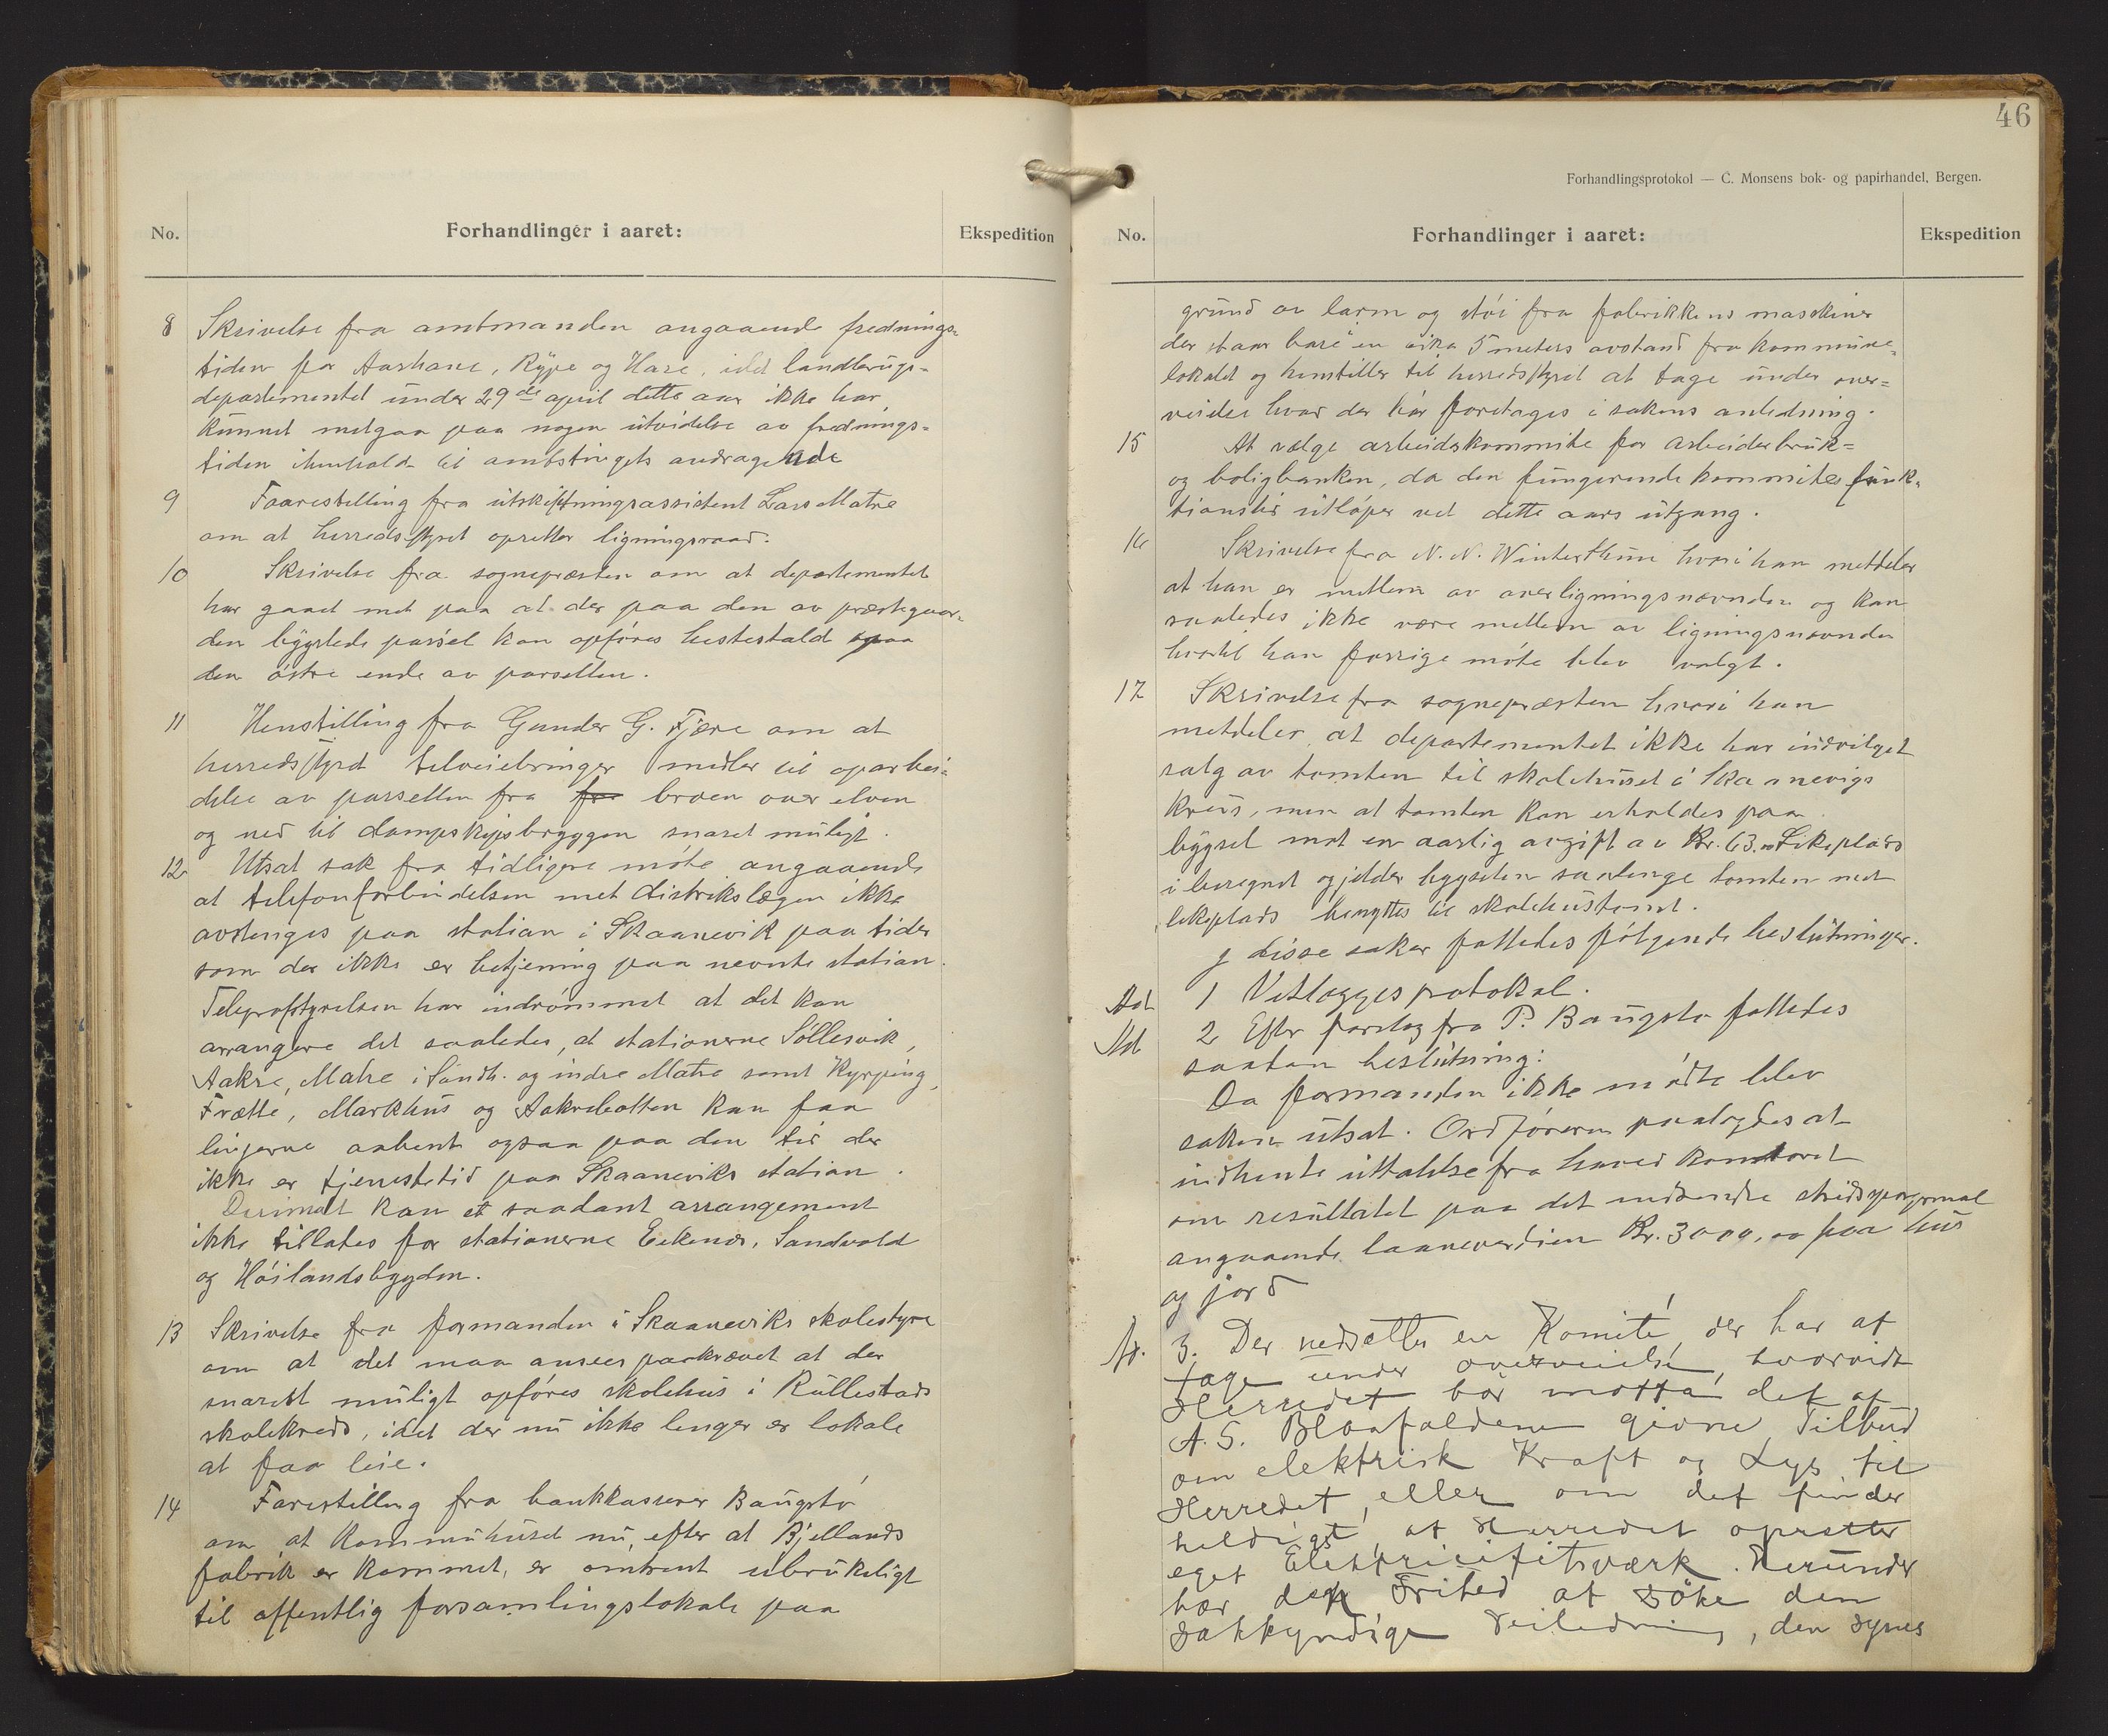 No.
Forhandlinger i aaret:
Ekspedition
8 Skrivelse fra amtmanden angaaende frednings-
tiden for Aarhane, Rype og Hare, idet landbrugs-
departementet under 29de april dette aar ikke har
kunnet medgaa paa nogen utvidelse av frednings-
tiden ihenhold til amtstingets andragende
9 Faarestelling fra utskiftningsassistent Lars Matre
om at herredsstyret opretter ligningsraad.
10 Skrivelse fra sognepresten om at departementet
har gaaet met paa at der paa den av præstegaar-
den bygslede parsel kan opføres hestestald paa
den østre ende av parsellen.
11 Henstilling fra Gunder G. Fjære om at
herredsstyret tilveiebringer midler til oparbei-
delse av parsellen fra for broen over elven
og ned til dampskipsbryggen snarest muligt.
12 Utsat sak fra tidligere møte angaaende
at telefonforbindelsen met distriktslægen ikke
avstenges paa station i Skaanevik paa tider
som der ikke er betjening paa nevnte station.
Telegrafstyrelsen har indrømmet at det kan
arrangere det saaledes, at stationerne Søllesvik,
Aakre, Matre i Søndh. og indre Matre samt Kyrping,
Frætte, Markhus og Aakrebotten kan faa
linjerne aabent ogsaa paa den tid der
ikke er tjenestetid paa Skaaneviks station.
Derimot kan et saadant arrangement
ikke tillates for stationerne Eikenes, Sandvold
og Høilandsbygden.
13 Skrivelse fra formanden i Skaaneviks skolestyre
om at det maa ansees paakrævet at der
snarest muligt opføres skolehus i Rullestads
skolekreds, idet der nu ikke lenger er lokale
at faa leie.
14 Forestilling fra bankkasserer Baugstø
om at Kommuhuset nu, efter at Bjellands
fabrik er kommet, er omtrent ubrukeligt
til offentlig forsamlingslokale paa
46
Forhandlingsprotokol — C. Monsens bok- og papirhandel, Bergen.
No.
Forhandlinger i aaret:
Ekspedition
grund av larm og støi fra fabrikkens masskiner
der staar bare en cirka 5 meters avstand fra kommune-
lokalet og henstiller til herredsstyret at tage under over-
veielse hvad der bør foretages i sakens anledning.
15 At velge arbeidskommite for arbeiderbruk-
og boligbanken, da den fungerende kommites funk-
tionstid utløper ved dette aars utgang.
16 Skrivelse fra N. N. Winterthun hvori han meddeler
at han er medlem av overligningsnævnden og kan
saaledes ikke være medlem av ligningsnævnden
hvortil han forrige møte blev valgt.
17 Skrivelse fra sognepræsten hvori han
meddeler at departementet ikke har indvilget
salg av tomten til skolehuset i Skaanevigs
kreds, men at tomten kan erholdes paa
bygsel mot en aarlig avgift av Kr. 63.00 Lekeplads
iberegnet og gjelder bygselen saalenge tomten med
lekeplads benyttes til skolehustomt.
I disse saker fattedes følgende beslutninger.
Ad 1 Vedlægges protokol.
Ad 2 Efter forslag fra P. Baugstø fattedes
saadan beslutning:
Da formanden ikke mødte blev
saken utsat. Ordføreren paalagdes at
indhente uttalelse fra hovedkontoret
om resultatet paa det indsendte stridsspørgsmaal
angaaende laaneverdien Kr. 3000,00 paa hus
og jord
3. Der nedsættes en Komité, der har at
tage under overveielse, hvorvidt
Herredet bør motta det af
A. S. Blaafaldene givne Tilbud
om elektrisk Kraft og Lys til
Herredet, eller om det finder
heldigst, at Herredet opretter
eget Elektricitetsværk. Herunder
har den Frihed at søke den
sakkyndige Veiledning, den synes